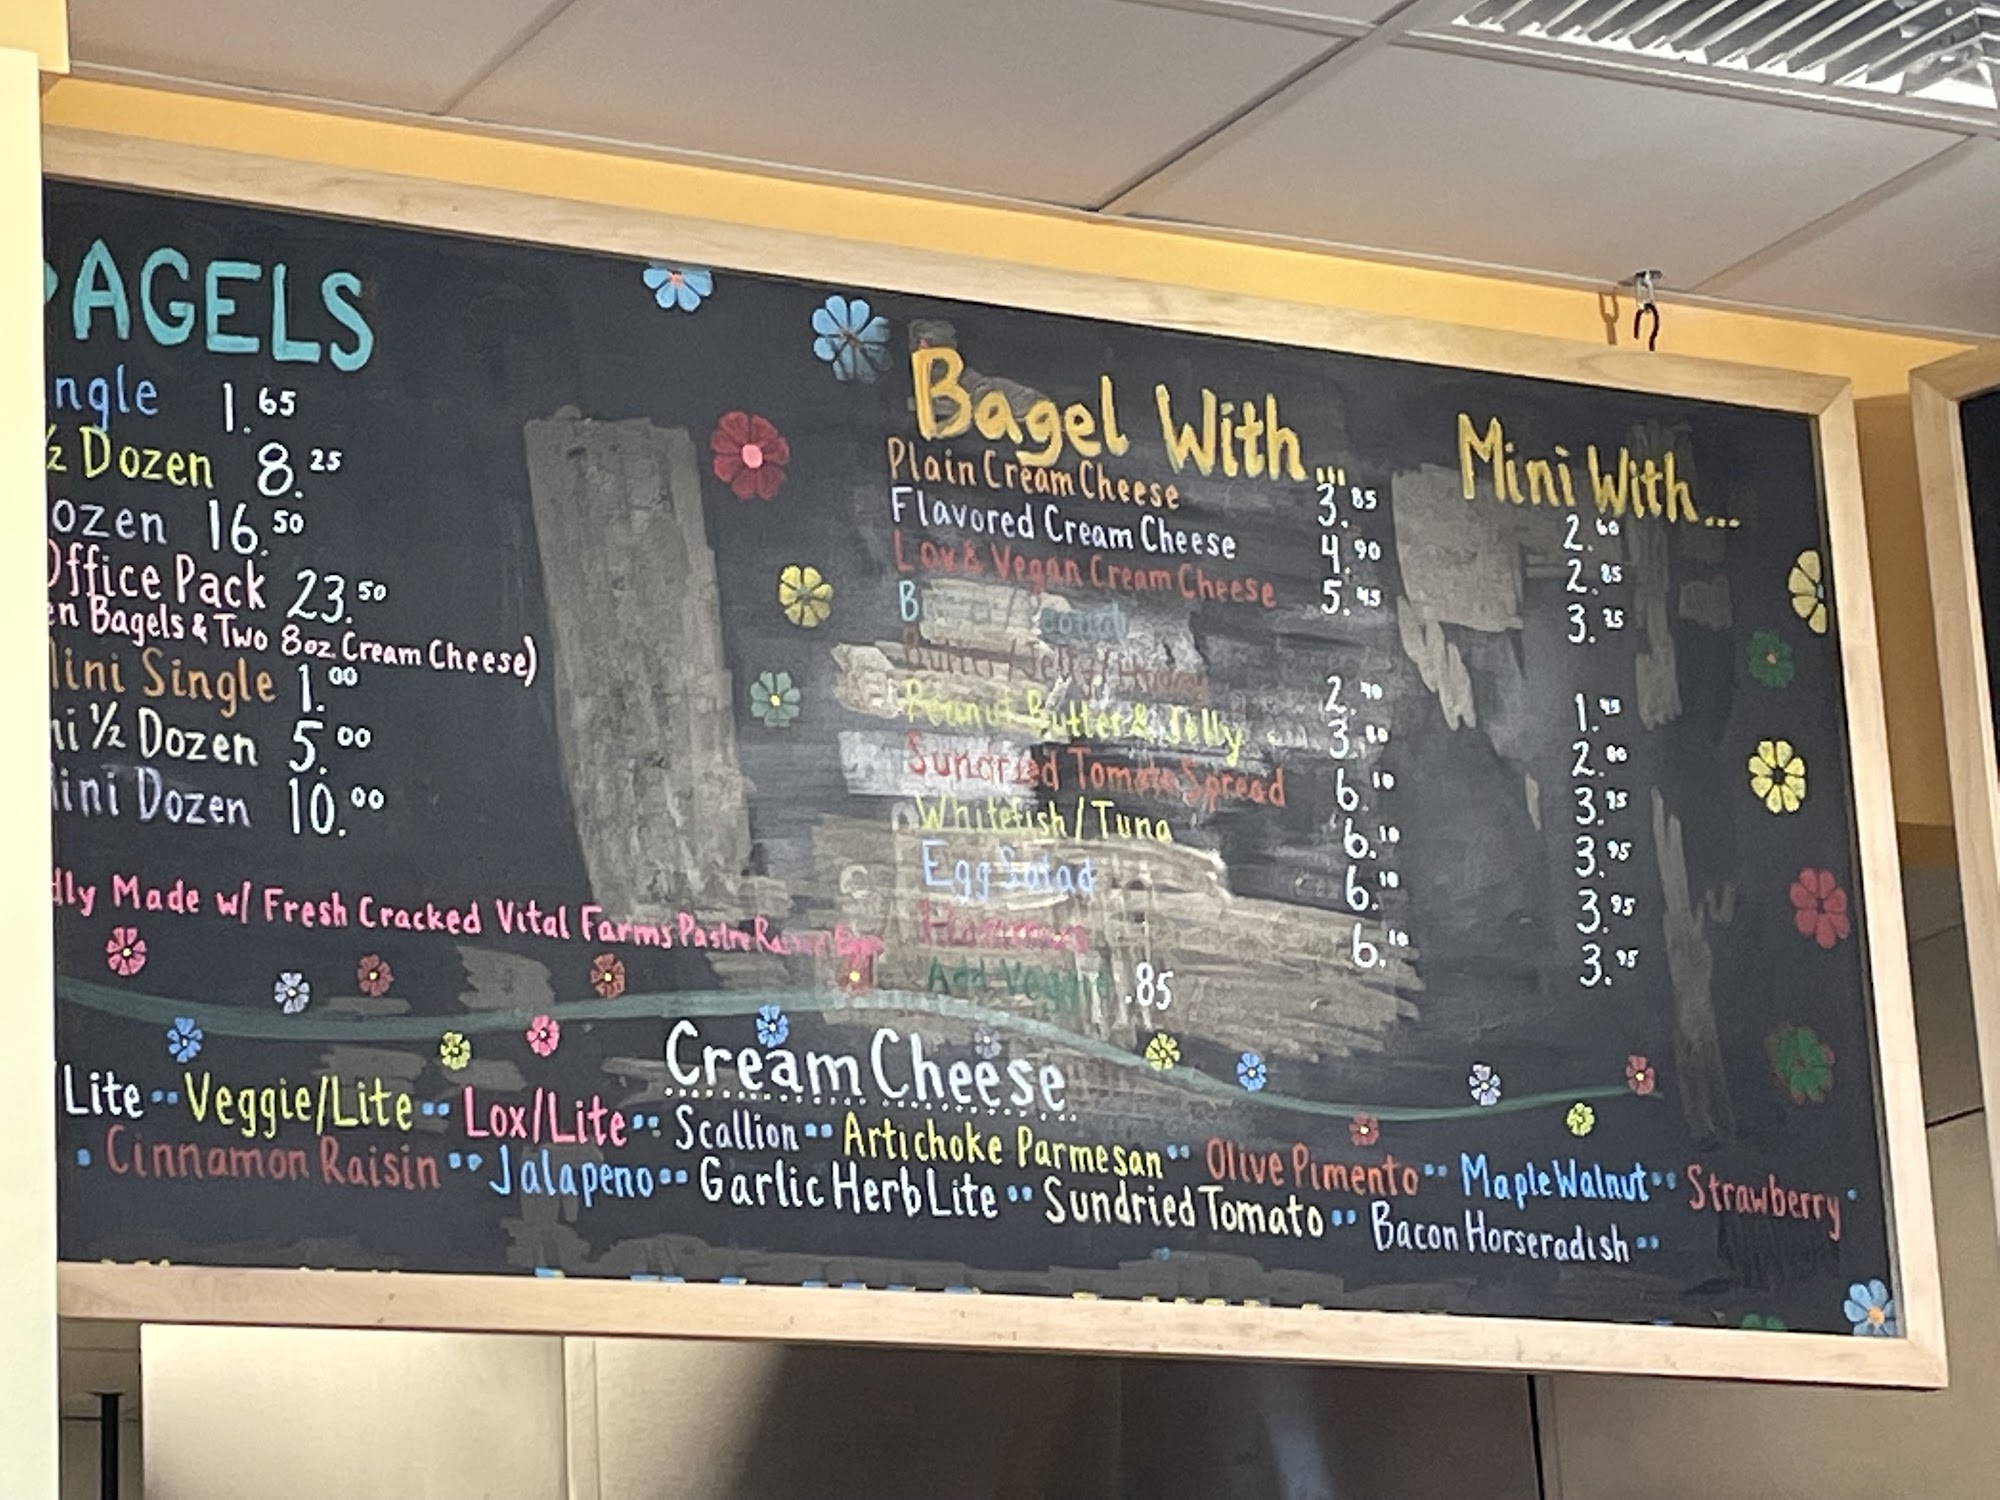 BAGELS
ngle 1.65
½ Dozen 8.25
ozen 16.50
Office Pack 23.50
en Bagels & Two 8oz. Cream Cheese)
ini Single 1.00
ni ½ Dozen 5.00
ini Dozen 10.00
dly Made w/ Fresh Cracked Vital Farms
Bagel With...
Mini With...
Plain Cream Cheese 3.85 2.60
Flavored Cream Cheese 4.90 2.85
Lox & Vegan Cream Cheese 5.45 3.25
Butter/Jelly/
Peanut Butter & Jelly
Sundried Tomato Spread
Whitefish/Tuna
Egg Salad
Hummus
2. 1.
3. 2.
6.10 3.95
6.10 3.95
6.10 3.95
6.10 3.95
Add Veggie .85
Cream Cheese
/Lite •• Veggie/Lite •• Lox/Lite •• Scallion •• Artichoke Parmesan •• Olive Pimento •• Maple Walnut •• Strawberry •
• Cinnamon Raisin •• Jalapeno •• Garlic Herb Lite •• Sundried Tomato •• Bacon Horseradish ••